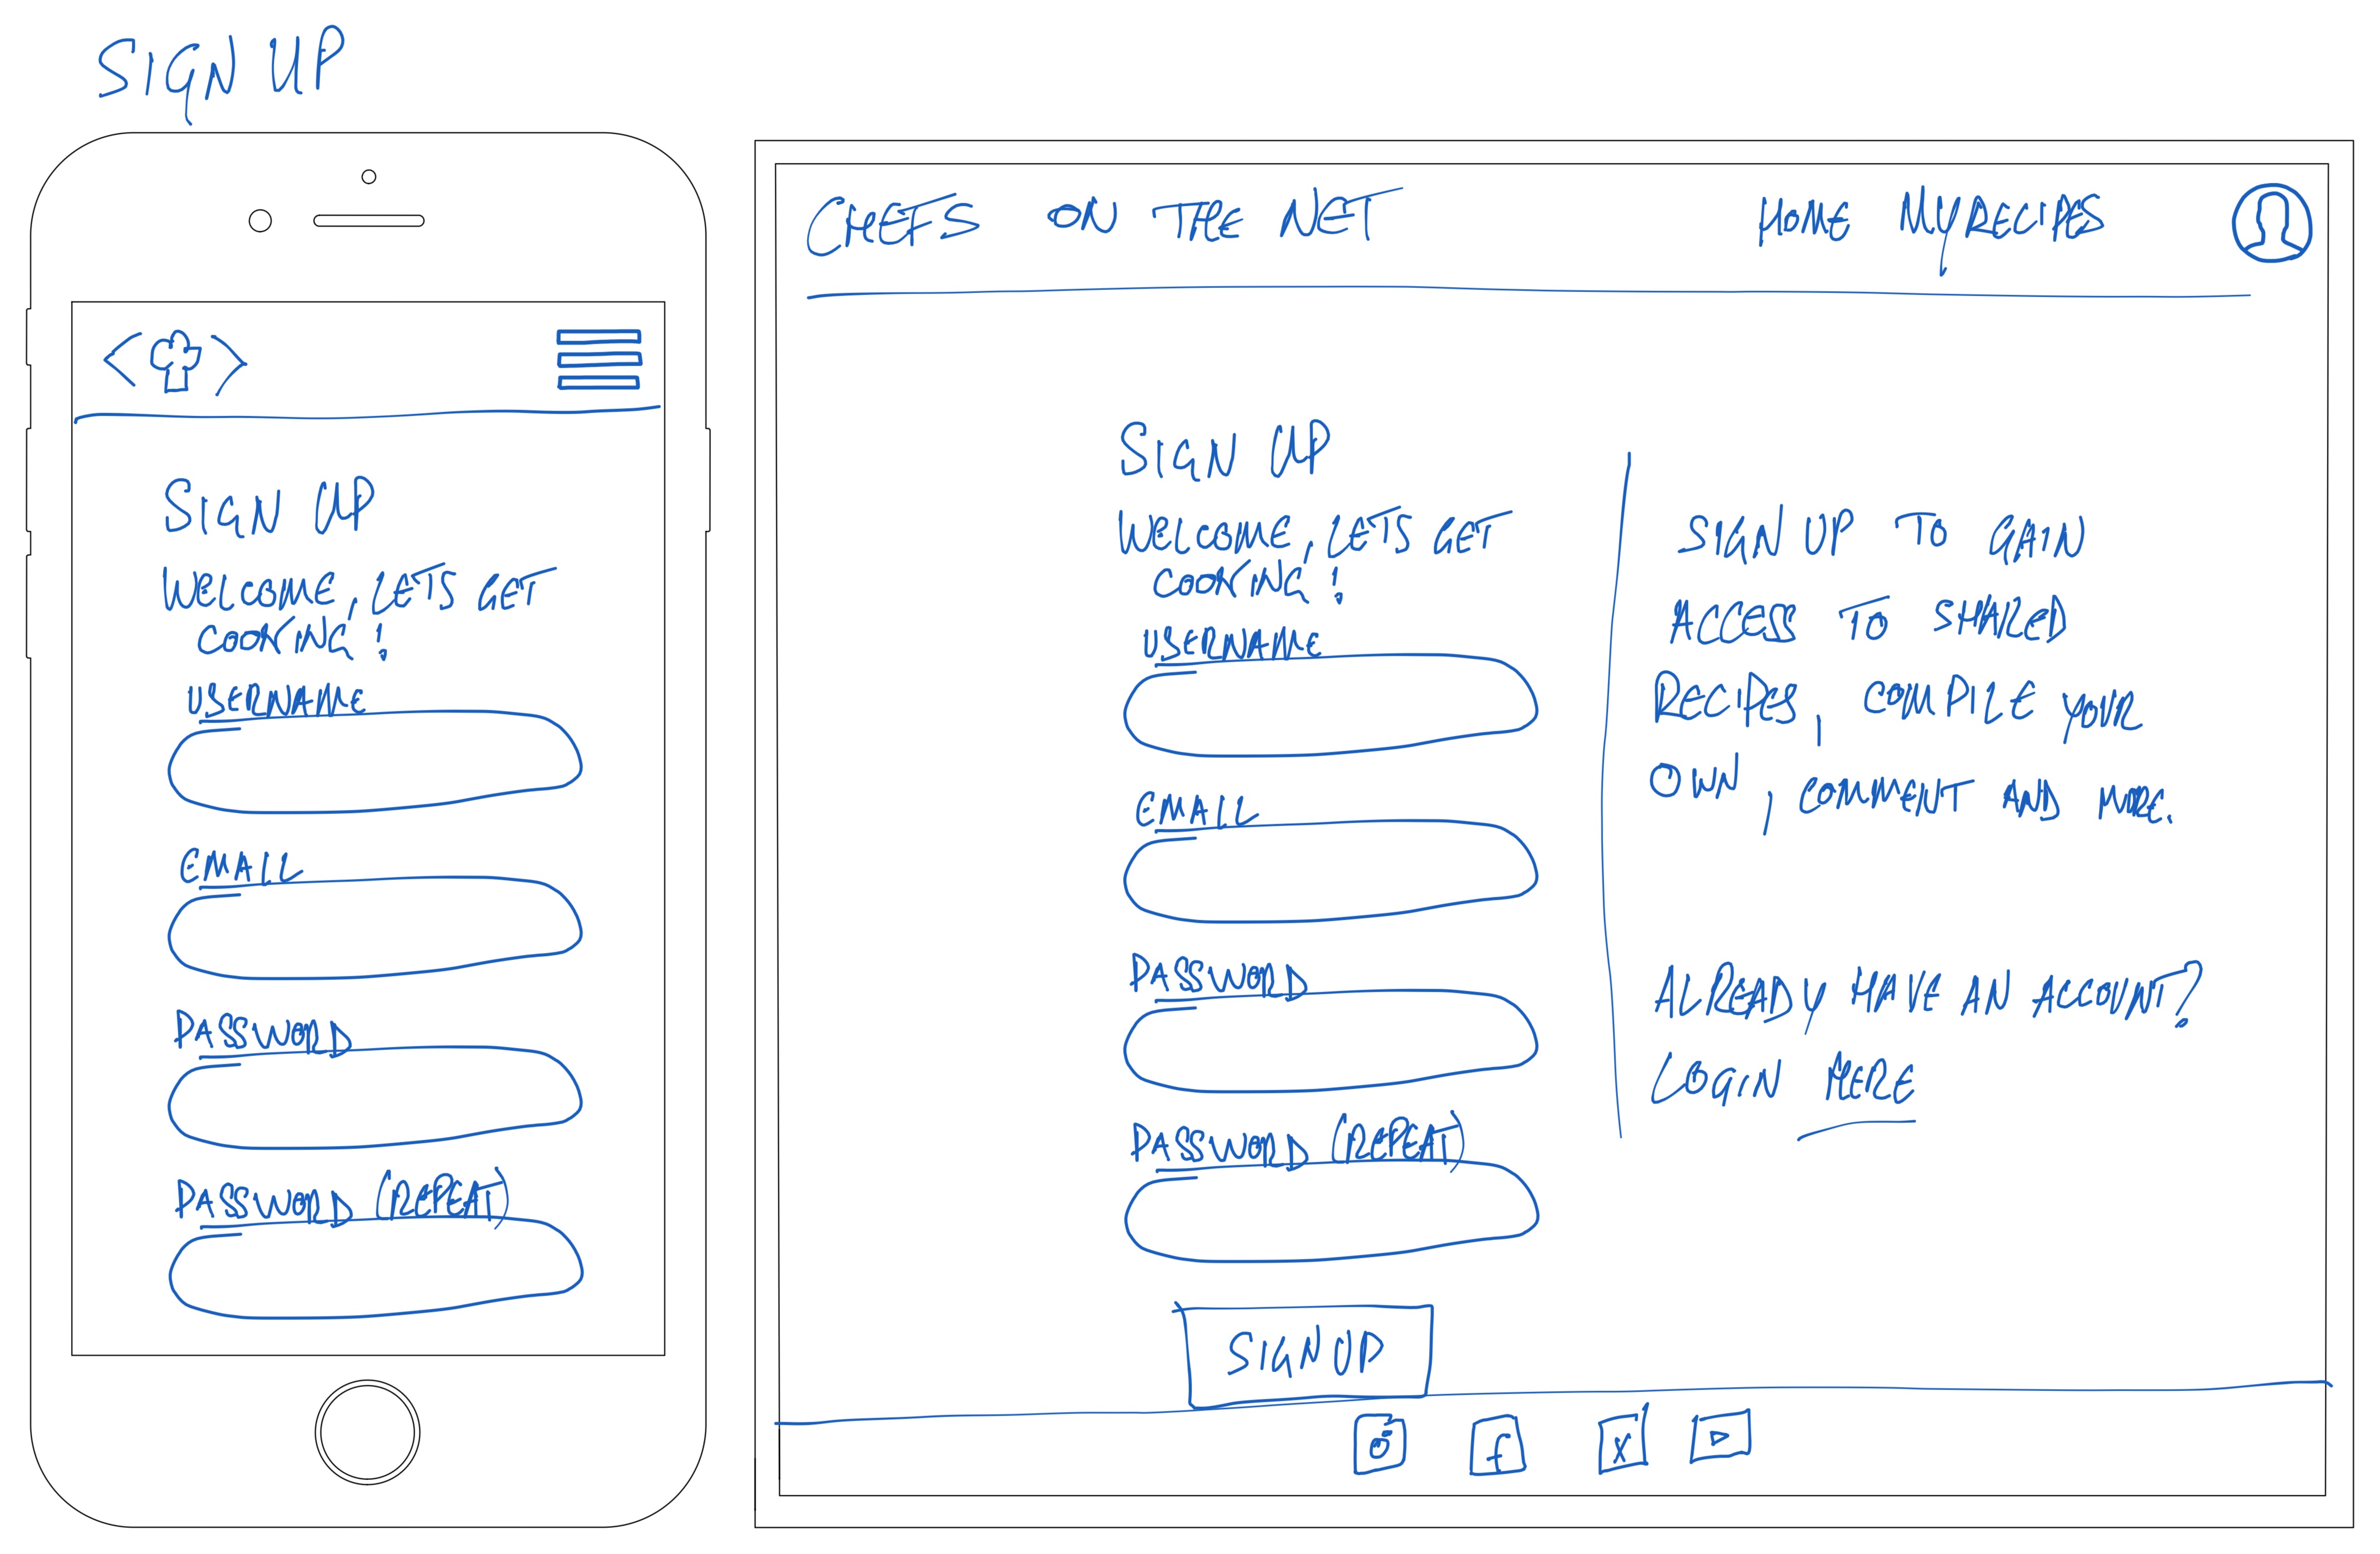 SIGN UP
SIGN UP
WELCOME, LETS GET
COOKING!
USERNAME
EMAIL
PASSWORD
PASSWORD (REPEAT)
CHEFS ON THE NET
HOME MY RECIPES
SIGN UP
WELCOME, LETS GET
COOKING!
USERNAME
EMAIL
PASSWORD
PASSWORD (REPEAT)
SIGN UP
SIGN UP TO GAIN
ACCESS TO SHARED
RECIPES, COMPILE YOUR
OWN, COMMENT AND MORE.
ALREADY HAVE AN ACCOUNT?
LOGIN HERE
f X